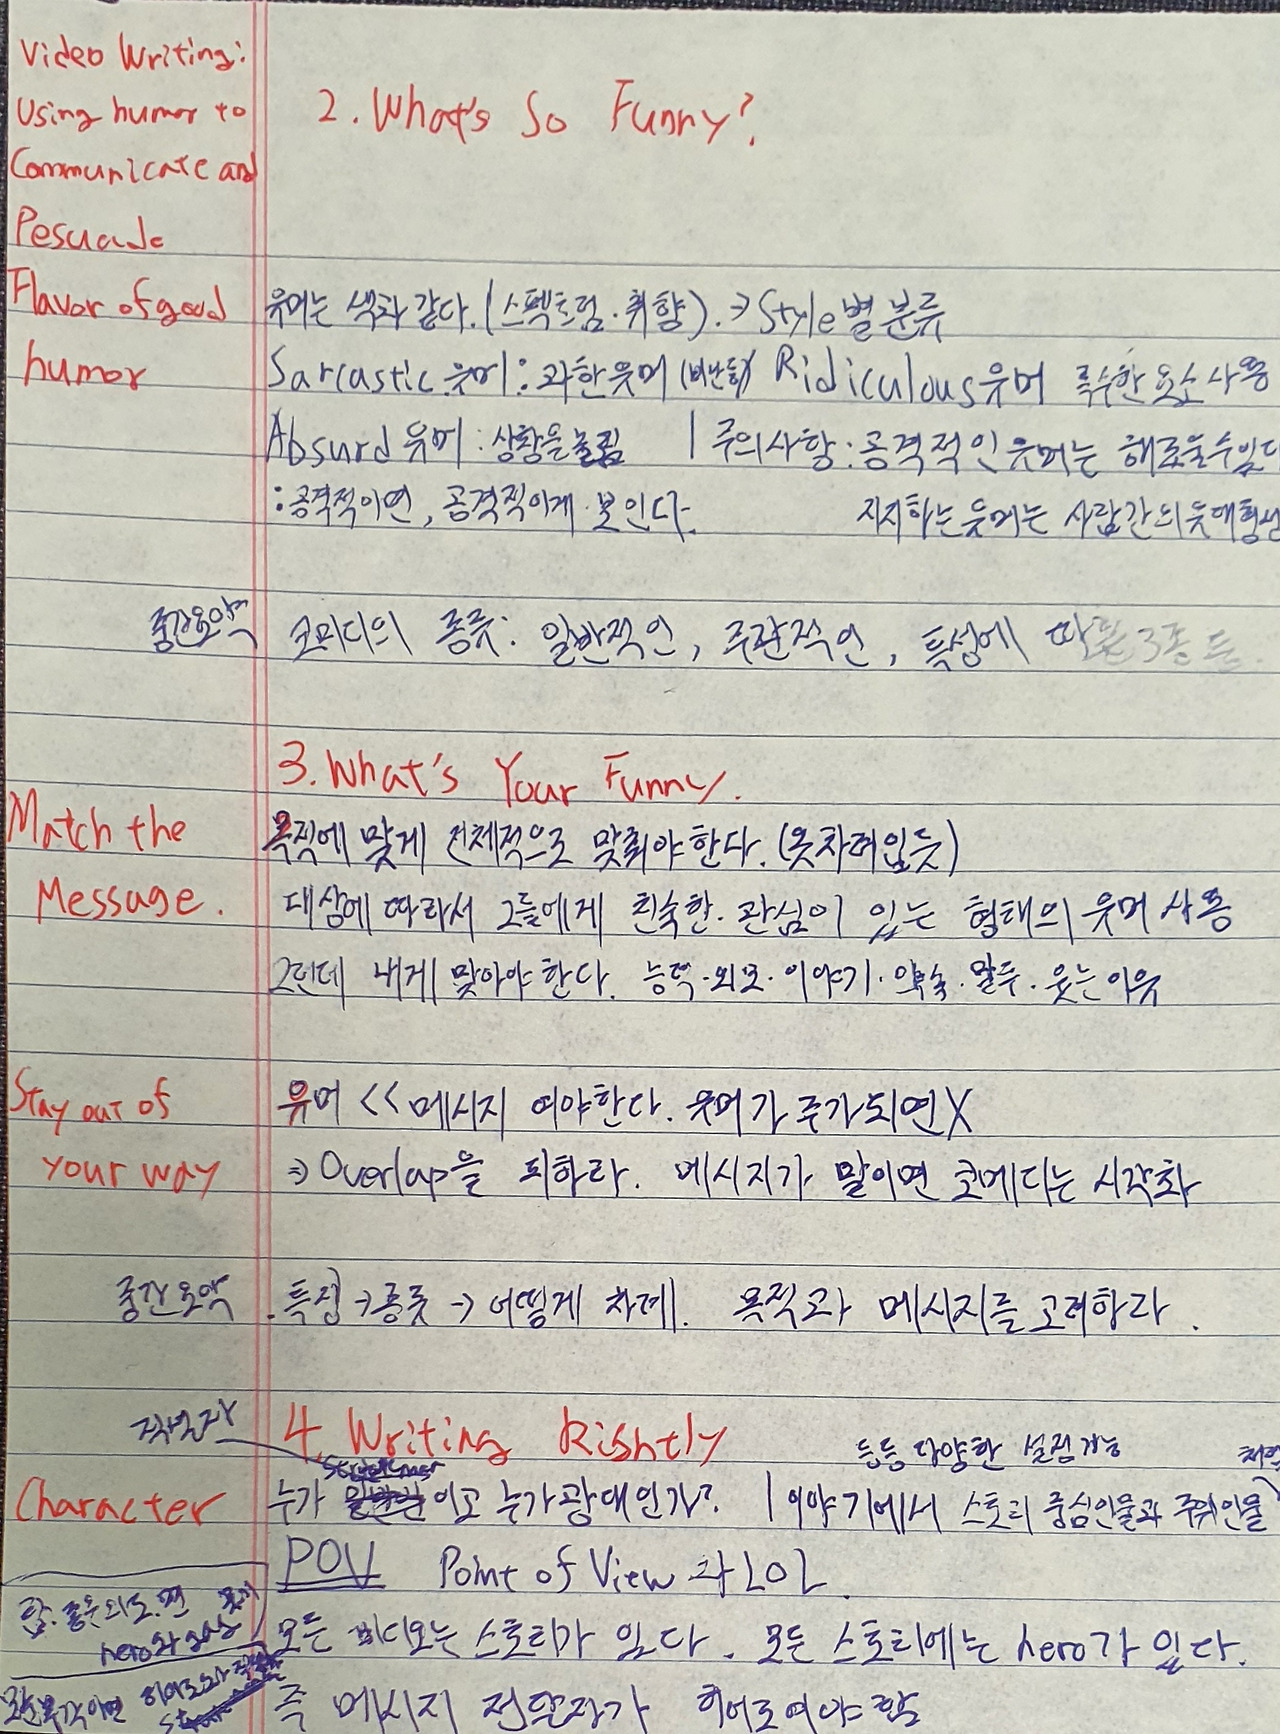 Video Writing:
Using humor to
Communicate and
Pesuade
2. What's So Funny?
Flavor of good
humor
유머는 색과 같다. (스펙트럼·취향). → Style별 분류
Sarcastic 유머: 과한유머 (비난투) Ridiculous유머 특수한 요소 사용
Absurd 유머 : 상황을 놀림 | 주의사항: 공격적인 유머는 해로울수있다
: 공격적이면, 공격적이게 보인다. 지지하는 유머는 사람간의 유대형성
중간요약 코미디의 종류: 일반적인, 주관적인, 특성에 따른 3종 등.
3. What's Your Funny.
Match the
Message.
목적에 맞게 전체적으로 맞춰야한다. (옷차려입듯)
대상에 따라서 그들에게 친숙한·관심이 있는 형태의 유머 사용
그런데 내게 맞아야한다. 능력·외모·이야기·약술·말투·웃는이유
Stay out of
your way
유머 << 메시지 여야한다. 유머가 주가되면X
⇒ Overlap을 피하라. 메시지가 말이면 코메디는 시각화
중간요약 . 특징→종류→어떻게 차례. 목적과 메시지를 고려하라.
4. Writing Rightly
등등 다양한 설정가능
Character
누가 이고 누가광대인가? | 이야기에서 스토리 중심인물과 주위인물
POV Point of View 와 LOL
hero와 gag
모든 비디오는 스토리가 있다. 모든 스토리에는 hero가 있다.
즉 메시지 전달자가 히어로여야함